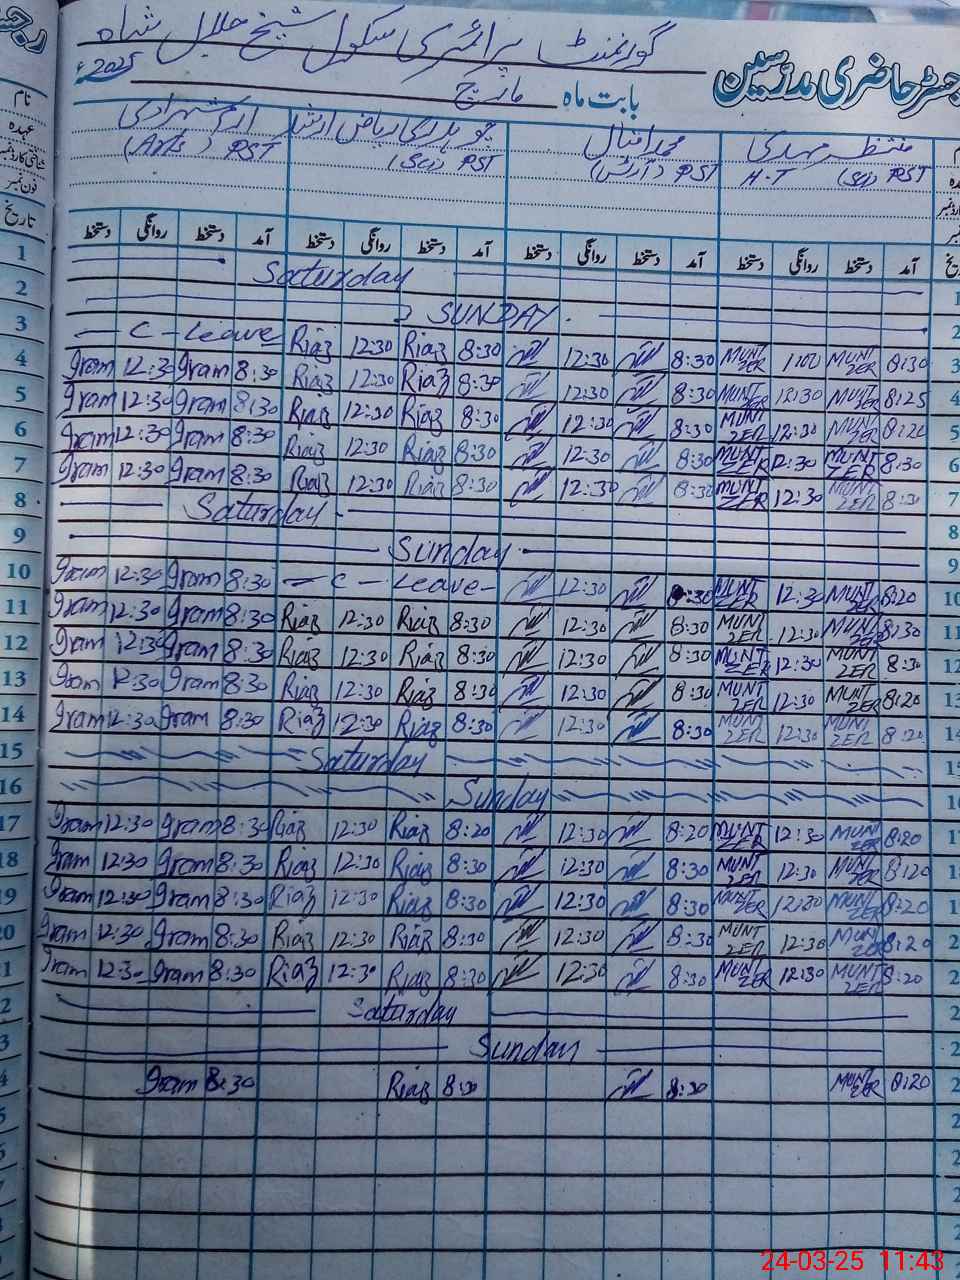 گورنمنٹ پرائمری سکول شیخ جلال شاہ
رجسٹر حاضری مدرسین بابت ماہ مارچ 2025ء
نام
عہدہ
شناختی کارڈ نمبر
فون نمبر
تاریخ
منتظر مہدی محمد اقبال چوہدری ریاض ارشد اکرم شہزادی
H.T (Sci) PST (آرٹس) PST (Sci) PST (Arts) PST
آمد دستخط روانگی دستخط آمد دستخط روانگی دستخط آمد دستخط روانگی دستخط آمد دستخط روانگی دستخط
1 Saturday
2 SUNDAY
3 C-Leave Riaz 12:30 Riaz 8:30 12:30 8:30 MUNTZER 1100 MUNTZER 8:30
4 Iram 12:30 Iram 8:30 Riaz 12:30 Riaz 8:30 12:30 8:30 MUNTZER 12:30 MUNTZER 8:25
5 Iram 12:30 Iram 8:30 Riaz 12:30 Riaz 8:30 12:30 8:30 MUNTZER 12:30 MUNTZER 8:20
6 Iram 12:30 Iram 8:30 Riaz 12:30 Riaz 8:30 12:30 8:30 MUNTZER 12:30 MUNTZER 8:30
7 Iram 12:30 Iram 8:30 Riaz 12:30 Riaz 8:30 12:30 8:30 MUNTZER 12:30 MUNTZER 8:30
8 Saturday
9 Sunday
10 Iram 12:30 Iram 8:30 C-Leave 12:30 8:30 MUNTZER 12:30 MUNTZER 8:20
11 Iram 12:30 Iram 8:30 Riaz 12:30 Riaz 8:30 12:30 8:30 MUNTZER 12:30 MUNTZER 8:30
12 Iram 12:30 Iram 8:30 Riaz 12:30 Riaz 8:30 12:30 8:30 MUNTZER 12:30 MUNTZER 8:30
13 Iram 12:30 Iram 8:30 Riaz 12:30 Riaz 8:30 12:30 8:30 MUNTZER 12:30 MUNTZER 8:20
14 Iram 12:30 Iram 8:30 Riaz 12:30 Riaz 8:30 12:30 8:30 MUNTZER 12:30 MUNTZER 8:20
15 Saturday
16 Sunday
17 Iram 12:30 Iram 8:30 Riaz 12:30 Riaz 8:20 12:30 8:20 MUNTZER 12:30 MUNTZER 8:20
18 Iram 12:30 Iram 8:30 Riaz 12:30 Riaz 8:30 12:30 8:30 MUNTZER 12:30 MUNTZER 8:20
19 Iram 12:30 Iram 8:30 Riaz 12:30 Riaz 8:30 12:30 8:30 MUNTZER 12:30 MUNTZER 8:20
20 Iram 12:30 Iram 8:30 Riaz 12:30 Riaz 8:30 12:30 8:30 MUNTZER 12:30 MUNTZER 8:20
21 Iram 12:30 Iram 8:30 Riaz 12:30 Riaz 8:30 12:30 8:30 MUNTZER 12:30 MUNTZER 8:20
Saturday
Sunday
Iram 8:30 Riaz 8:30 8:30 MUNTZER 8:20
24-03-25 11:43